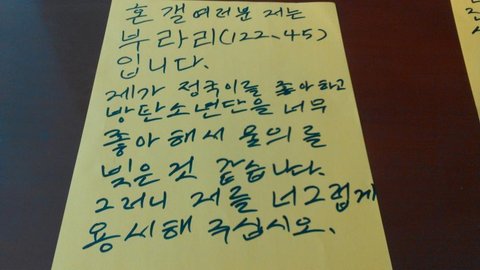 혼갤여러분 저는
부라리(122.45)
입니다.
제가 정국이를 좋아하고
방탄소년단을 너무
좋아해서 물의를
빚은것 같습니다.
그러니 저를 너그럽게
용서해 주십시오.